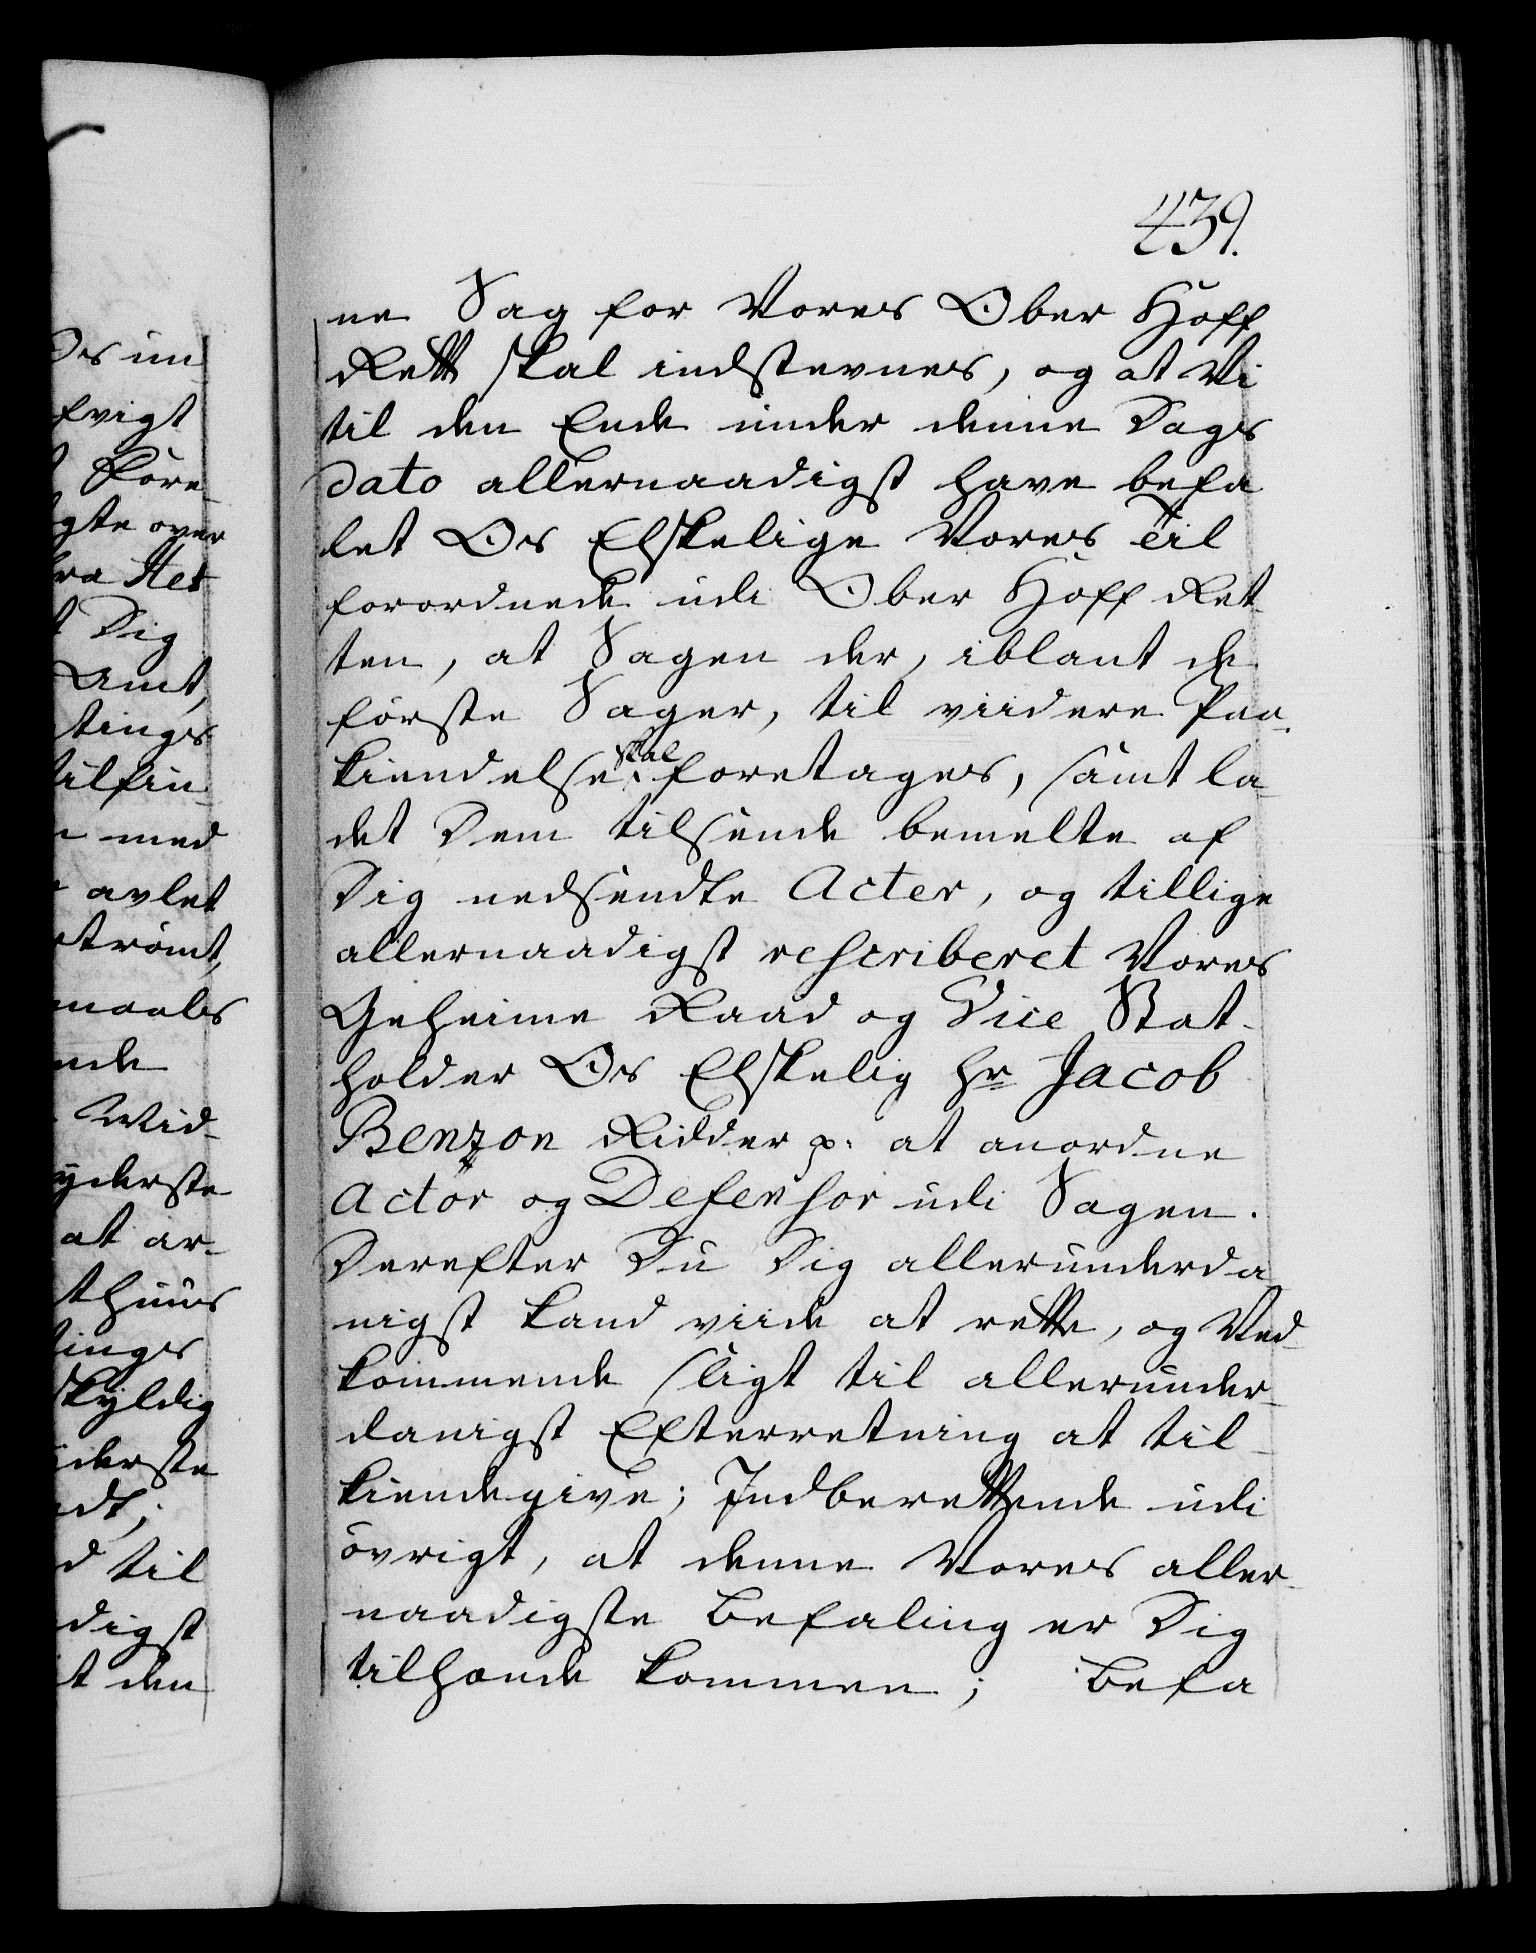 439.
ne Sag for Vores Ober Hoff
Rett skal indstevnes, og at Vi
til den Ende under denne Dags
Dato allernaadigst have befa
let Os Elskelige Vores Til
forordnede udi Ober Hoff Ret
ten, at Sagen der, iblant de
förste Sager, til viidere Paa-
kiendelse skal foretages, samt la-
det Dem tilsende bemelte af
Dig nedsendte Acter, og tillige
allernaadigst rescriberet Vores
Geheime Raad og Vice Stat-
holder Os Elskelig Hr Jacob
Benzon Ridder p. at anordne
Actor og Defensor udi Sagen.
Derefter Du Dig allerunderda
nigst kand viide at rette, og Ved-
kommende sligt til allerunder-
danigst Efterretning at til-
kiendegive; Indberettende udi
övrigt, at denne Vores aller-
naadigste Befaling er Dig
tilhonde kommen; Befa
Os un
Evigt
over
fra
t Dig
Amt,
tings
tilfin-
med
avlet
maales
nde
Wid-
yderste
at ar-
thuus
tinges
skyldig
derste
d til
digst
t den